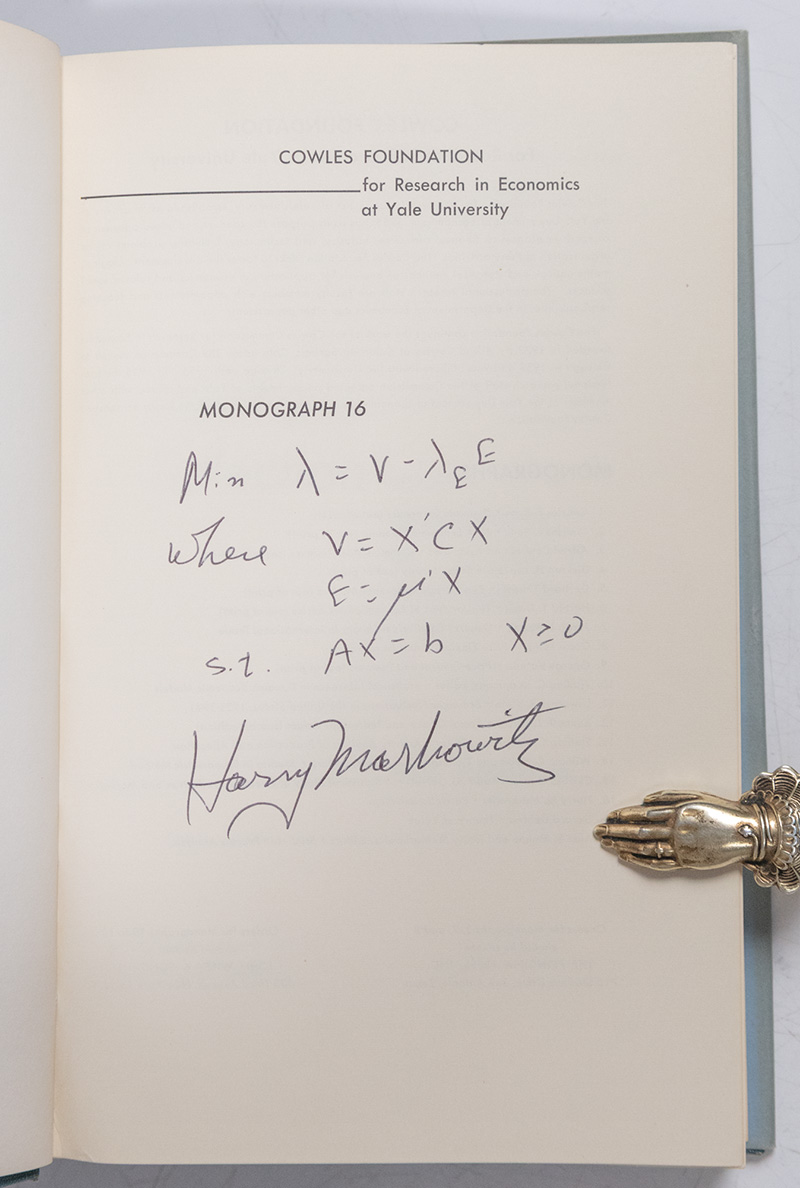 COWLES FOUNDATION
for Research in Economics
at Yale University
MONOGRAPH 16
Min λ = V - λ_E E
where V = X'CX
E = μ'X
s.t. AX = b X ≥ 0
Harry Markowitz